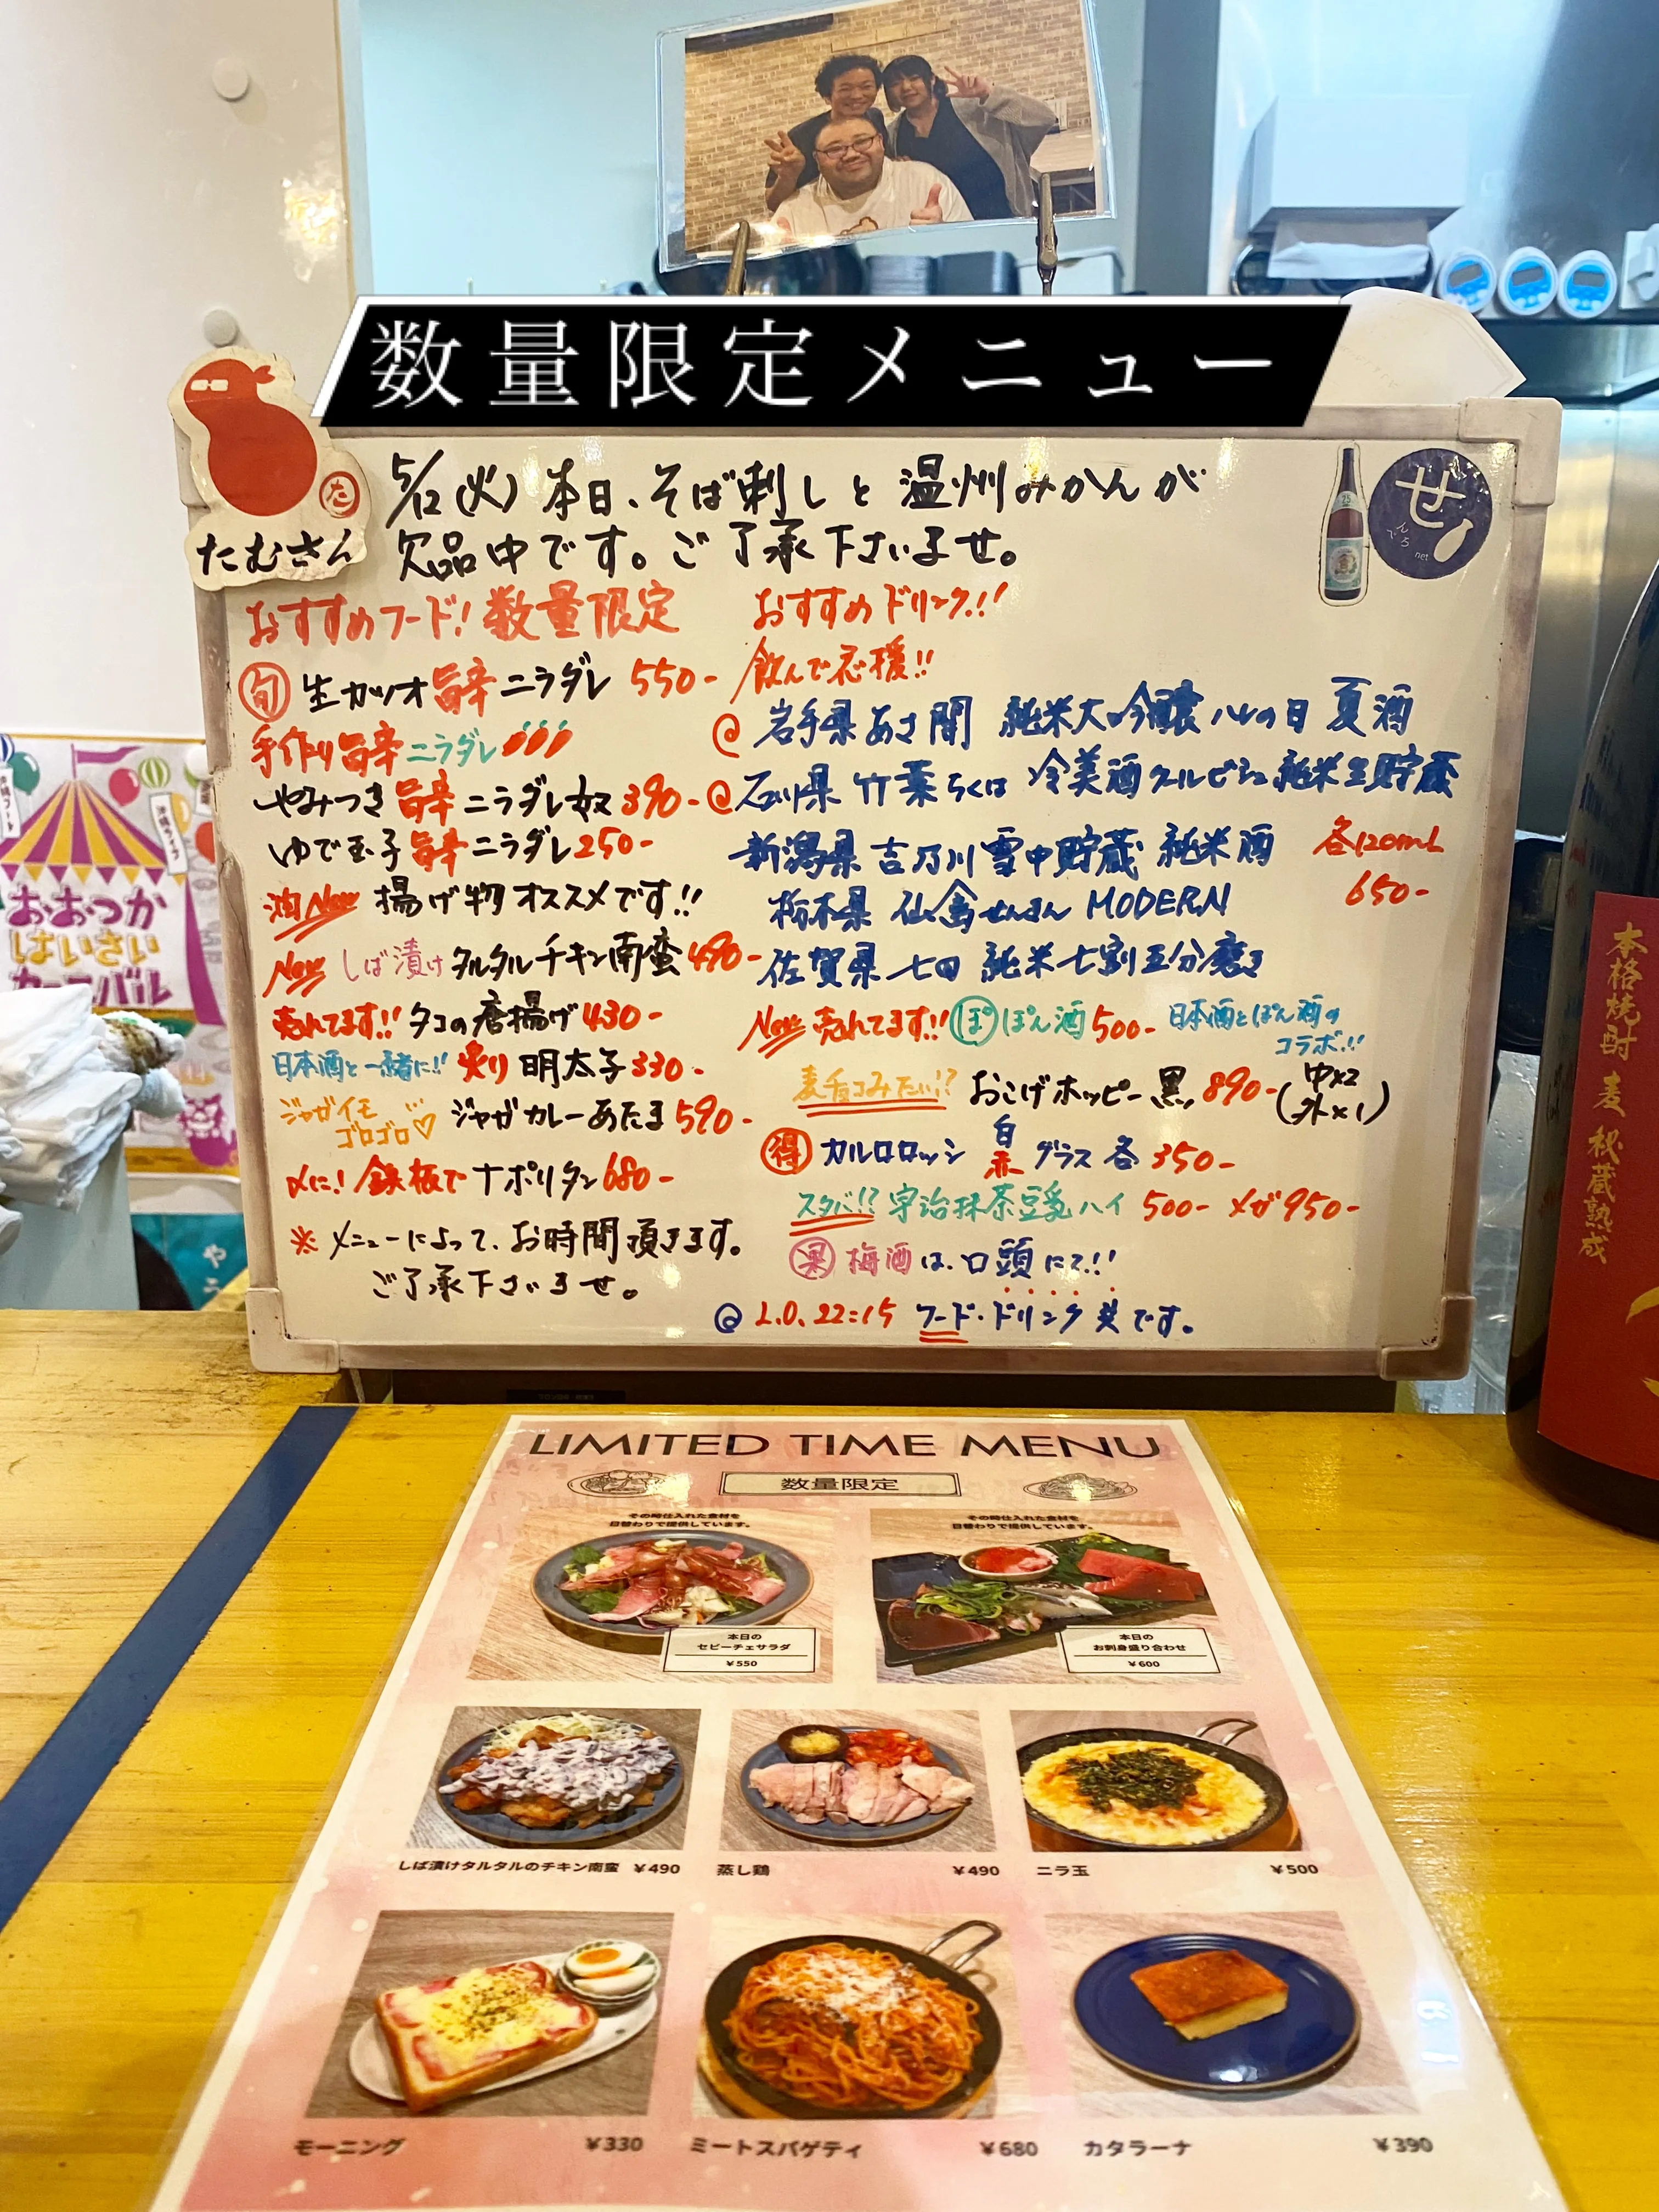 数量限定メニュー
た
たむさん
せ
でんろ
net
5/12(火)本日、そば刺しと温州みかんが
欠品中です。ご了承下さいませ。
おすすめフード!数量限定
旬 生カツオ旨辛ニラダレ 550-
手作り旨辛ニラダレ
やみつき旨辛ニラダレ奴 390-
ゆで玉子旨辛ニラダレ250-
油New 揚げ物オススメです!!
New しば漬けタルタルチキン南蛮490-
売れてます!!タコの唐揚げ430-
日本酒と一緒に!!炙り明太子330-
ジャガイモ
ゴロゴロ♡ ジャガカレーあたま590-
〆に!鉄板でナポリタン680-
※メニューによって、お時間頂きます。
ご了承下さいませ。
おすすめドリンク!!
飲んで応援!!
@岩手県あさ開 純米大吟醸ハレの日 夏酒
@石川県 竹葉ちくは 冷美酒クールビシュ純米生貯蔵
新潟県吉乃川雪中貯蔵 純米酒
栃木県 仙禽せんきん MODERN
各120mL
650-
佐賀県七田 純米七割五分磨き
New売れてます!!ぽ ぽん酒500- 日本酒とぽん酒の
コラボ!!
麦チョコみたい!? おこげホッピー黒 890-(中×2
外×1)
得 カルロロッシ 白
赤 グラス各 350-
スタバ!?宇治抹茶豆乳ハイ 500- メガ950-
果 梅酒は、口頭にて!!
@ L.O.22:15 フード・ドリンク共です。
おおつか
はいさい
カーニバル
本格焼酎 麦 秘蔵熟成
LIMITED TIME MENU
数量限定
その時仕入れた食材を
日替わりで提供しています。
本日の
セビーチェサラダ
¥550
その時仕入れた食材を
日替わりで提供しています。
本日の
お刺身盛り合わせ
¥600
しば漬けタルタルのチキン南蛮 ¥490
蒸し鶏 ¥490
ニラ玉 ¥500
モーニング ¥330
ミートスパゲティ ¥680
カタラーナ ¥390